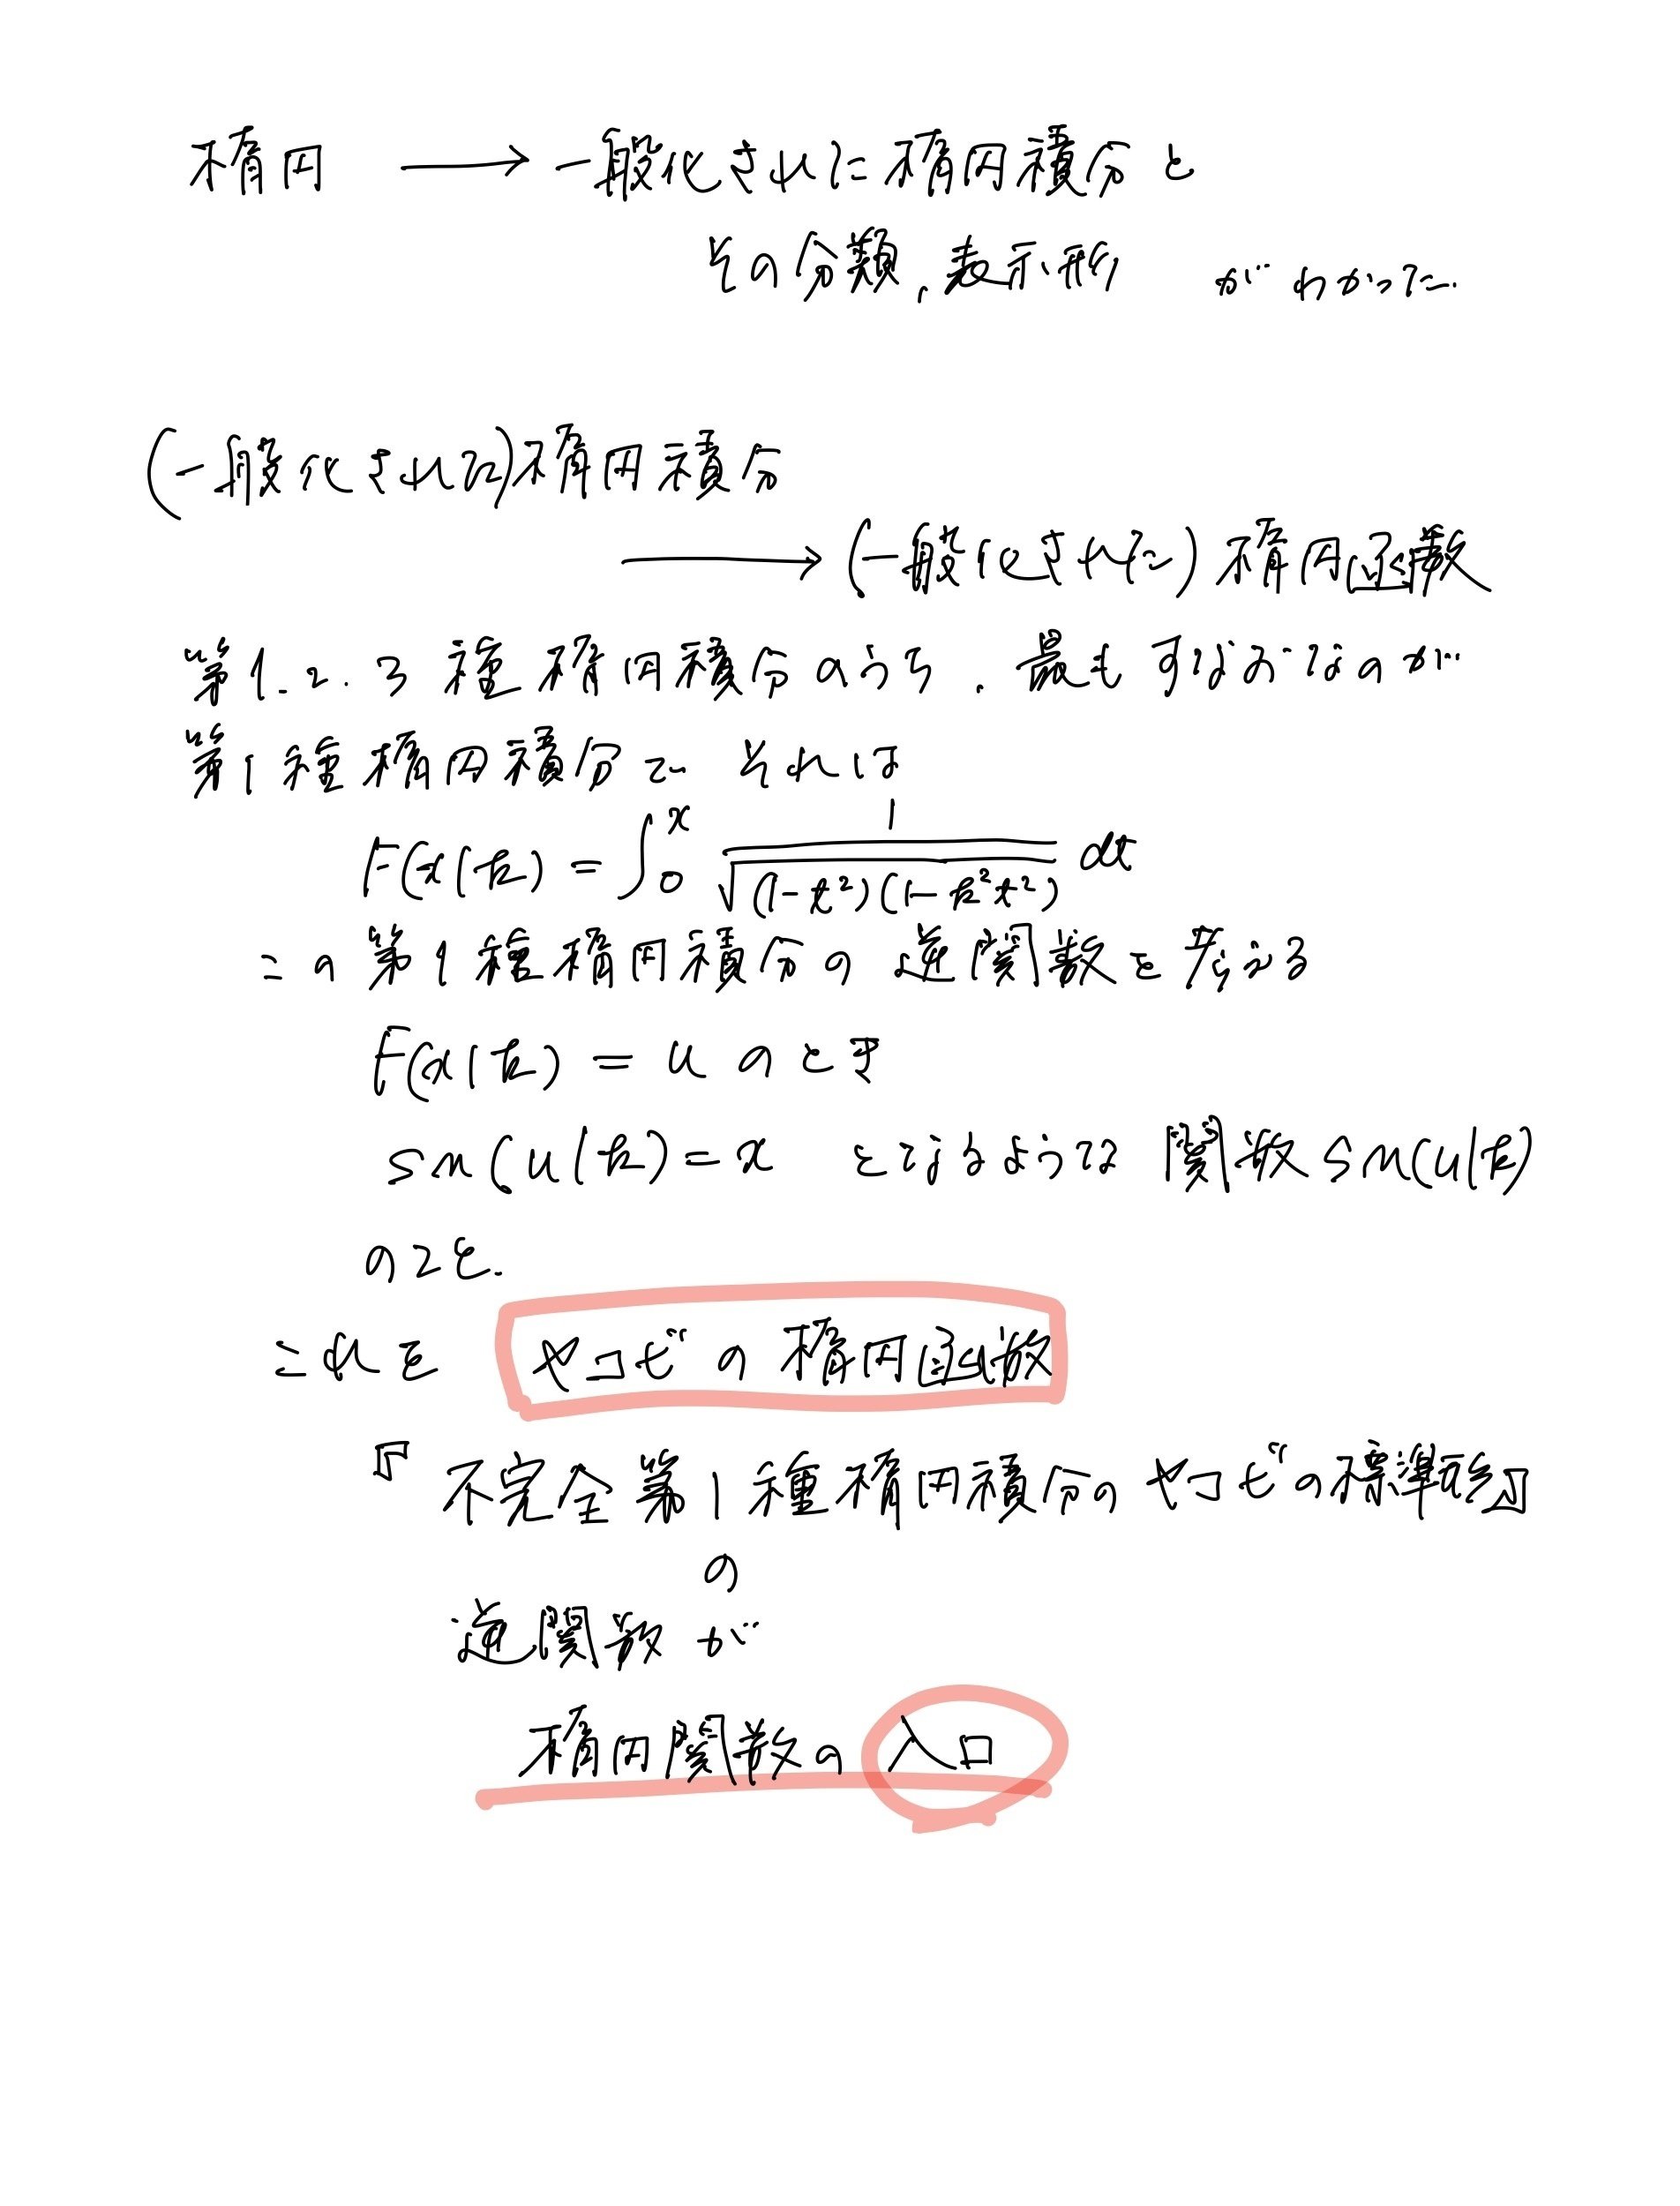 楕円 → 一般化された楕円積分と
その分類、表示形 がわかった.
(一般化された)楕円積分
→ (一般化された) 楕円函数
第1.2.3種楕円積分のうち、最もすなおなのが
第1種楕円積分で それは
F(x|k) = ∫₀ˣ 1/√((1-t²)(1-k²t²)) dt
この第1種楕円積分の逆関数を考える
F(x|k) = u のとき
sn(u|k) = x となるような関数 sn(u|k)
のこと.
これを ヤコビの楕円函数
『不完全第1種楕円積分のヤコビの標準形』
の
逆関数が
楕円関数の入口